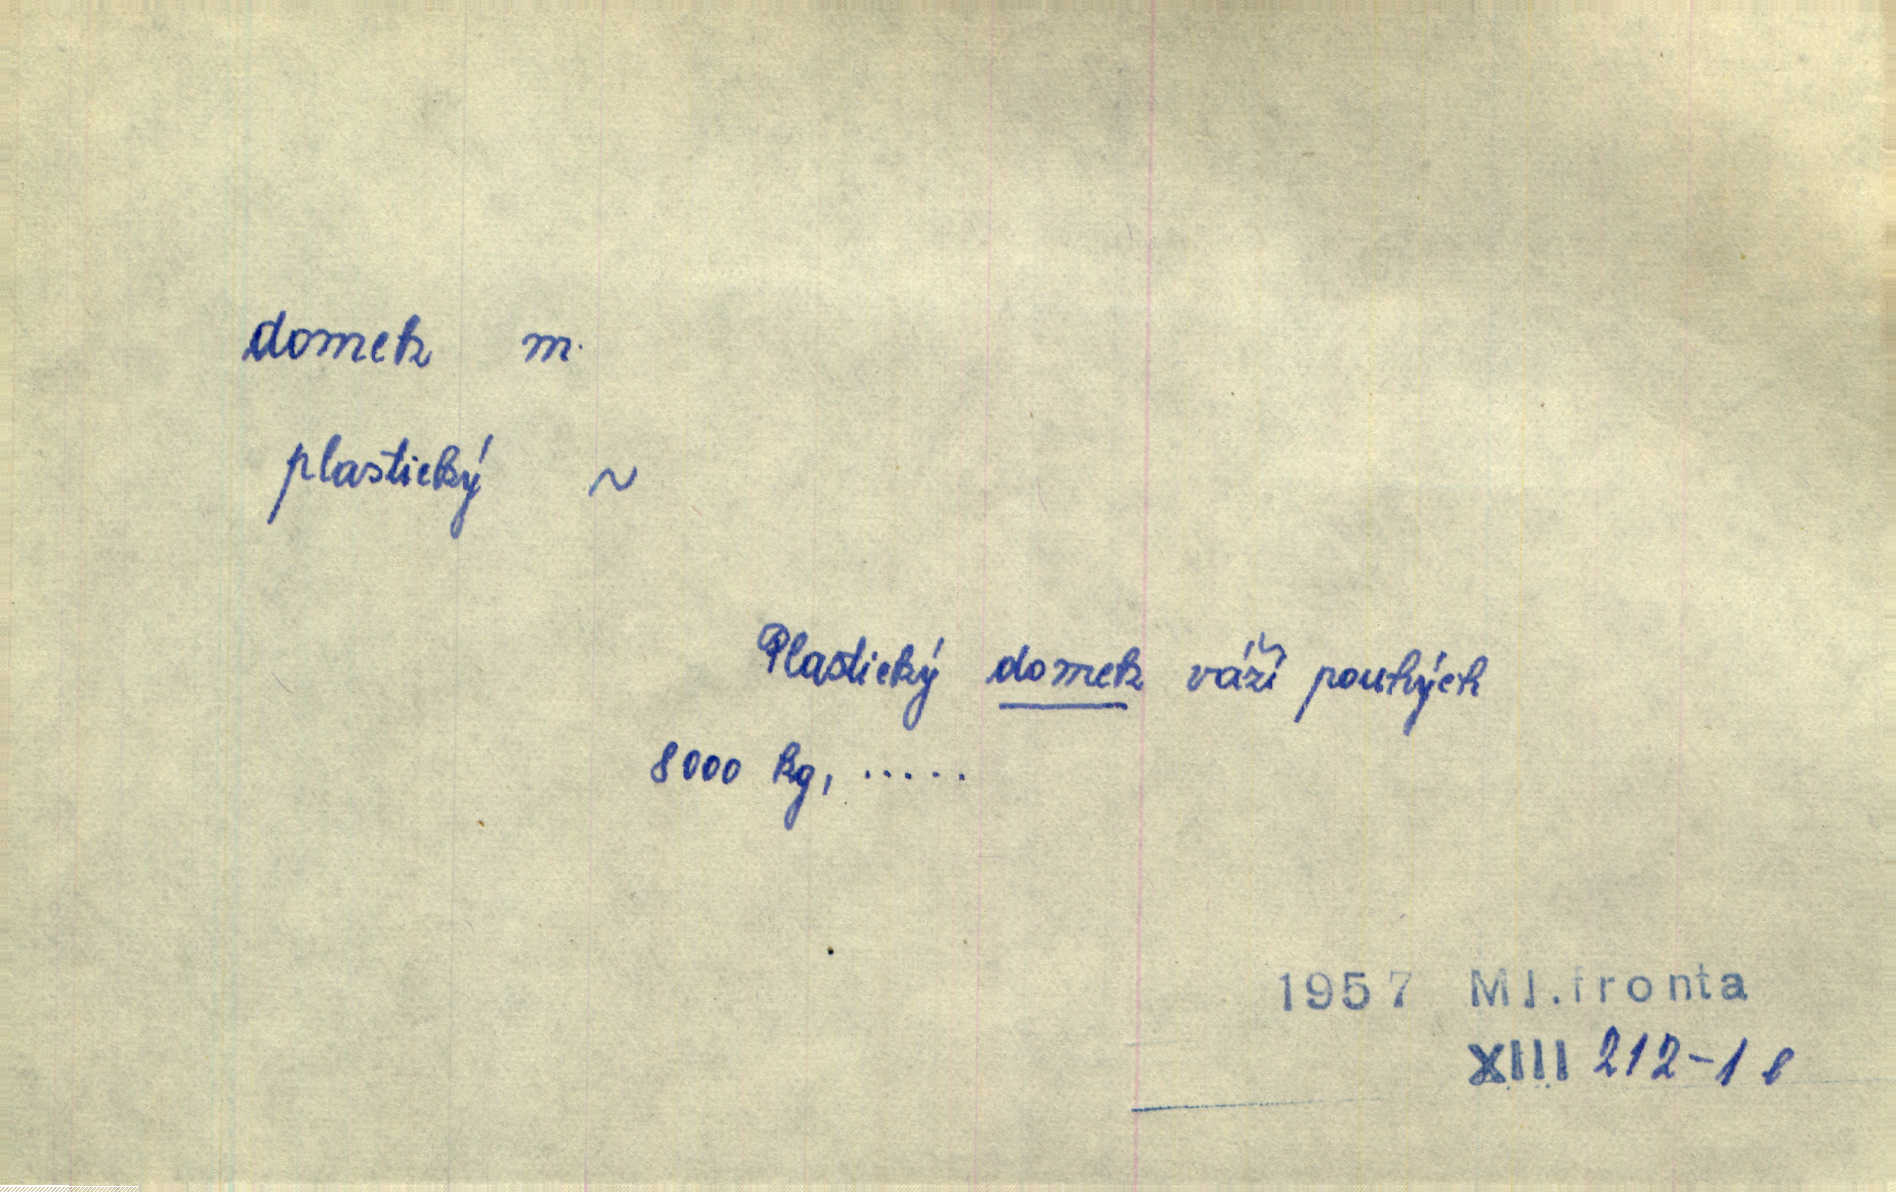 domek m.
plastický ~
Plastický domek váží pouhých
8000 kg, .....
1957 Ml.fronta
XIII 212-1